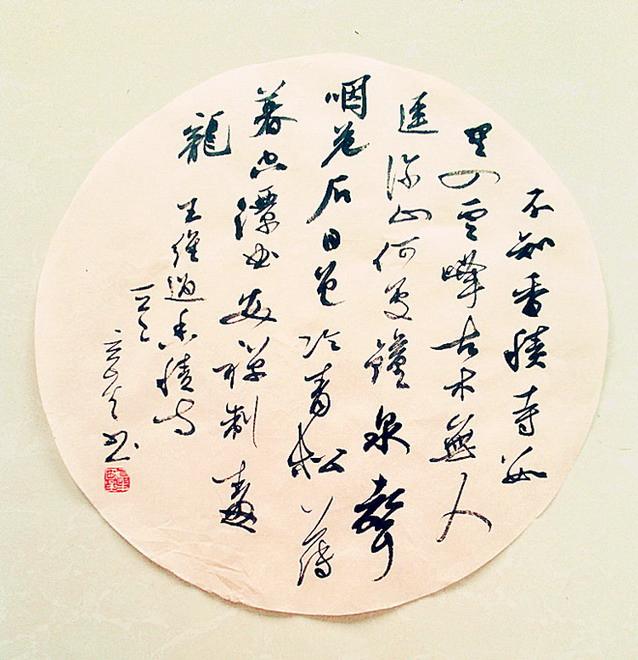 不知香積寺數
里入雲峰古木無人
逕深山何處鐘泉聲
咽危石日色冷青松薄
暮空潭曲安禪制毒
龍 王維過香積寺
书